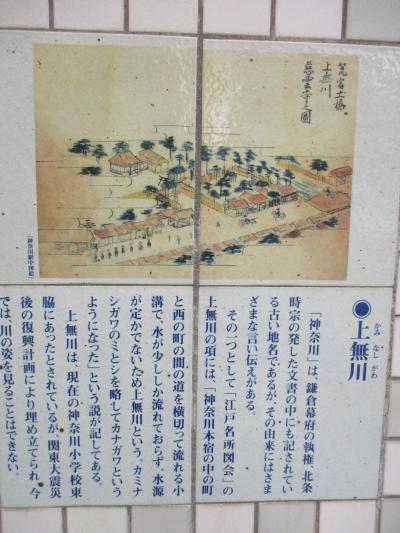 笠䅣土橋
上無川
慈雲寺之圖
「神奈川駅中図絵」
●上無川
かみなしがわ
「神奈川」は、鎌倉幕府の執権、北条
時宗の発した文書の中にも記されてい
る古い地名であるが、その由来にはさま
ざまな言い伝えがある。
その一つとして「江戸名所図会」の
上無川の項には、「神奈川本宿の中の町
と西の町の間の道を横切って流れる小
溝で、水が少ししか流れておらず、水源
が定かでないため上無川という。カミナ
シガワのミとシを略してカナガワという
ようになった」という説が記してある。
上無川は、現在の神奈川小学校東
脇にあったとされているが、関東大震災
後の復興計画により埋め立てられ、今
では川の姿を見ることはできない。